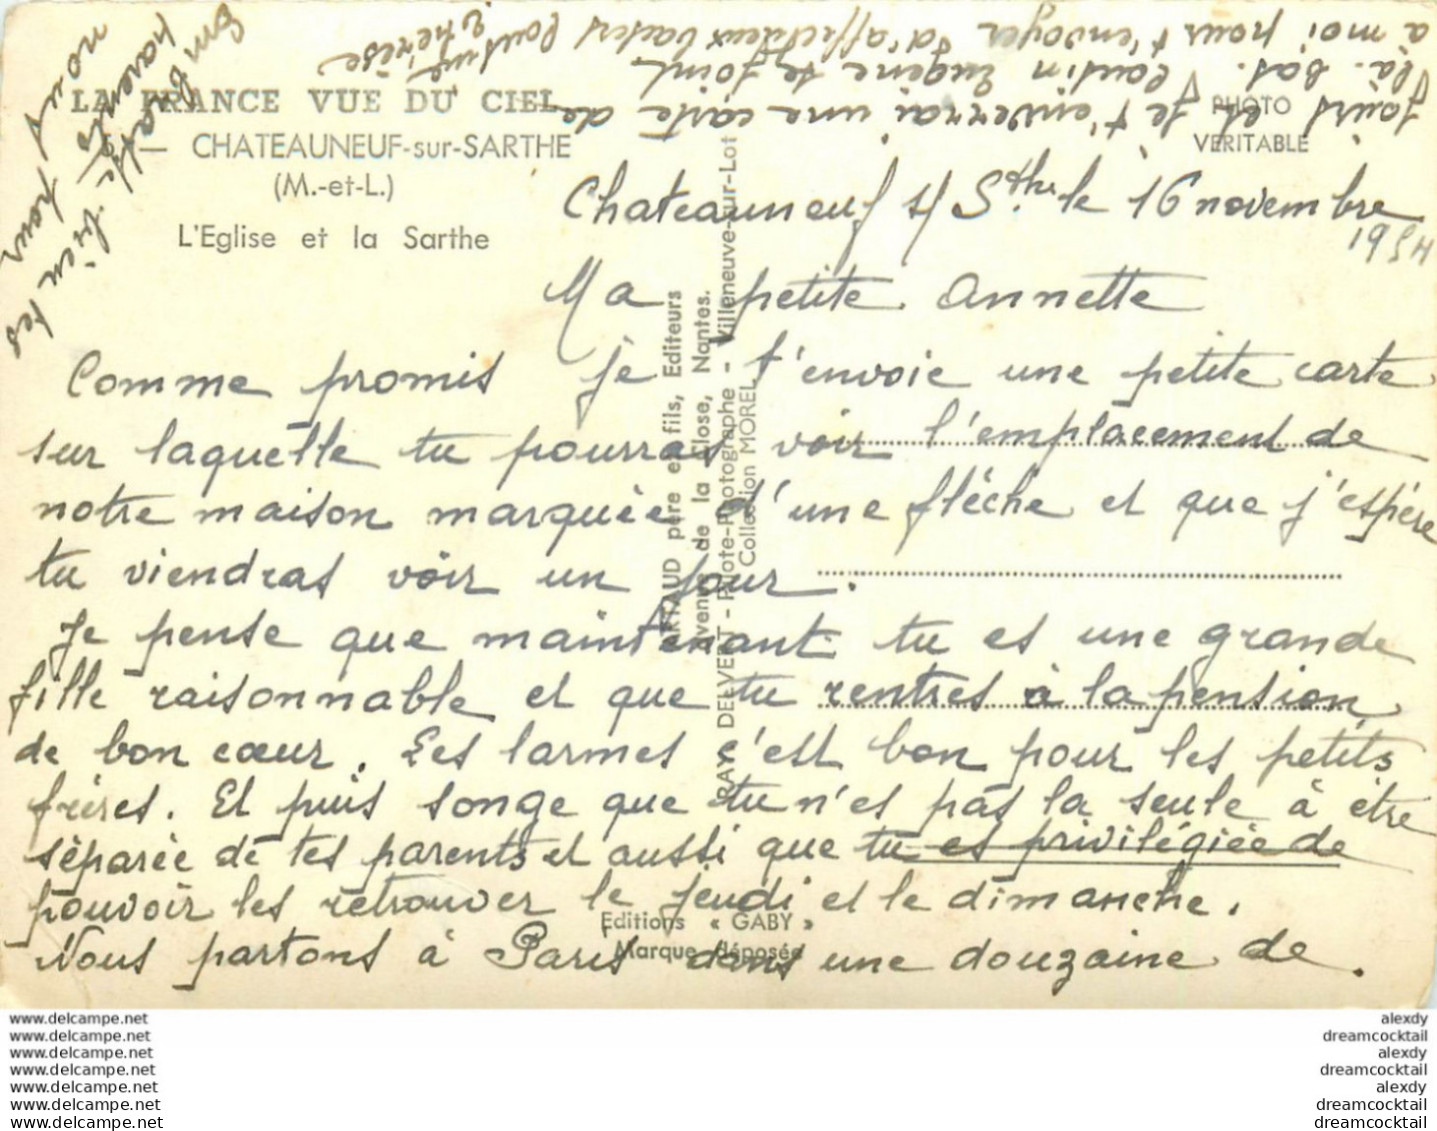 LA FRANCE VUE DU CIEL
— CHATEAUNEUF-sur-SARTHE
(M.-et-L.)
L'Eglise et la Sarthe
PHOTO
VERITABLE
Chateauneuf s/ Sthe le 16 novembre
1954
Ma petite Annette
Comme promis je t'envoie une petite carte
sur laquelle tu pourras voir l'emplacement de
notre maison marquée d'une flèche et que j'espère
tu viendras voir un jour.
Je pense que maintenant tu es une grande
fille raisonnable et que tu rentres à la pension
de bon cœur. Les larmes c'est bon pour les petits
frères. Et puis songe que tu n'es pas la seule à être
séparée de tes parents et aussi que tu es privilégiée de
pouvoir les retrouver le jeudi et le dimanche.
Nous partons à Paris dans une douzaine de
jours et je t'enverrai une carte de
là-bas. Cousin Eugène se joint
à moi pour t'envoyer d'affectueux baisers
Thérèse
Embrasse bien tes
parents pour
nous
ARTAUD père et fils, Editeurs
avenue de la Close, Nantes.
RAY DELVERT - Pilote-Photographe - Villeneuve-sur-Lot
Collection MOREL
Editions « GABY »
Marque déposée
www.delcampe.net
www.delcampe.net
www.delcampe.net
www.delcampe.net
www.delcampe.net
www.delcampe.net
www.delcampe.net
alexdy
dreamcocktail
alexdy
dreamcocktail
alexdy
dreamcocktail
dreamcocktail